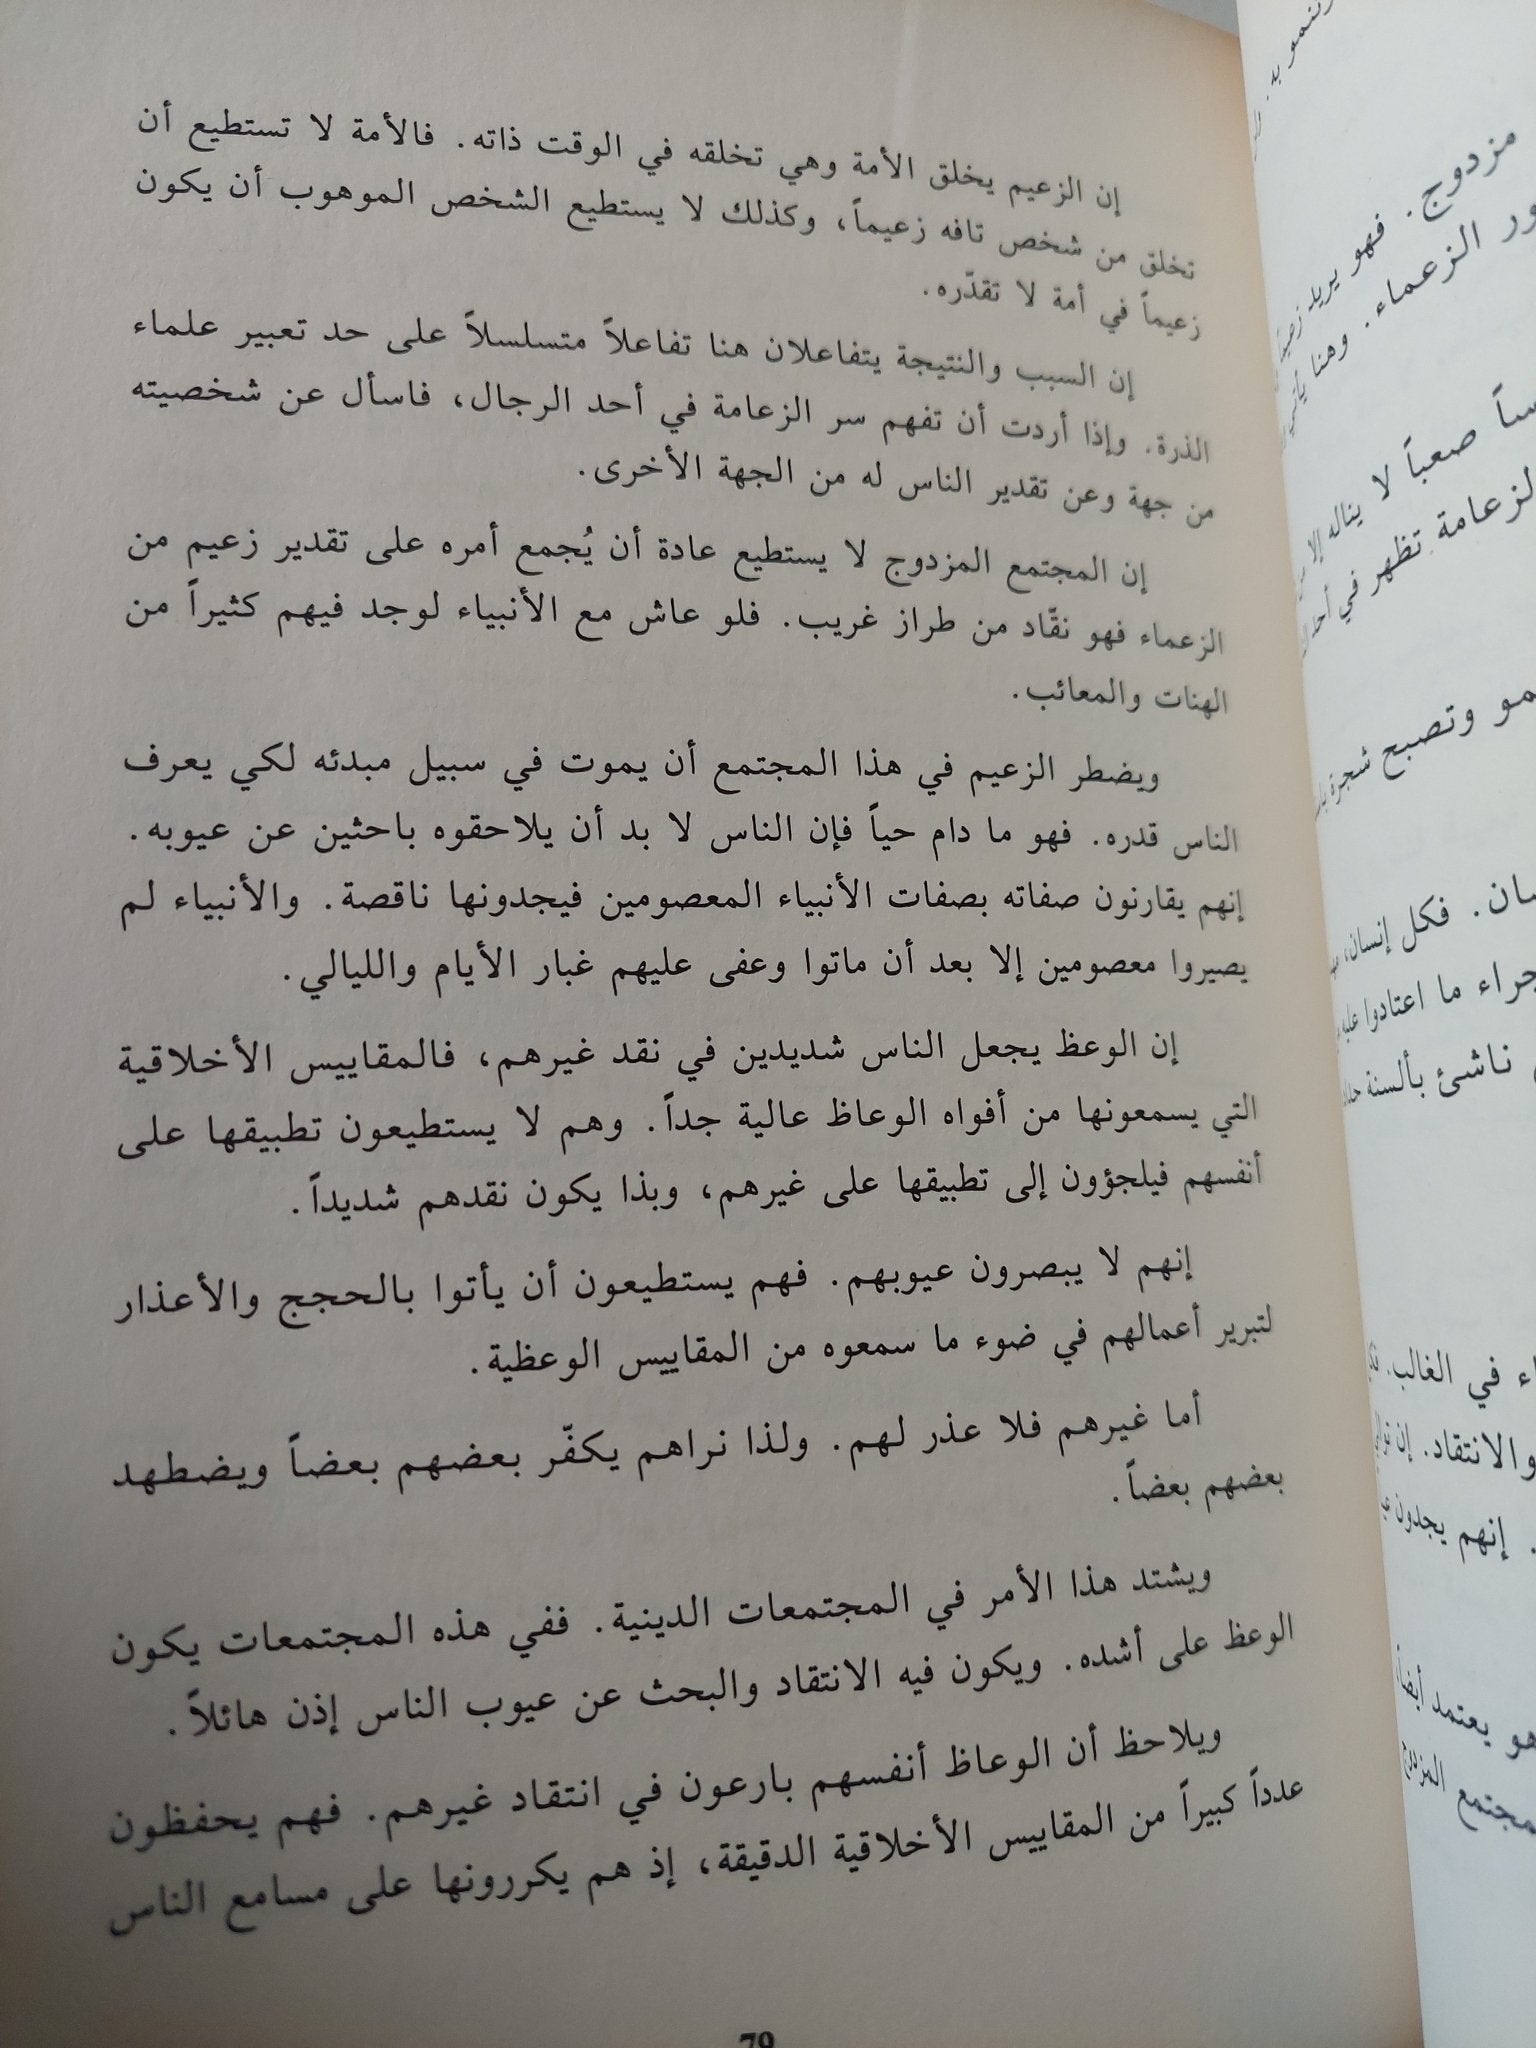 إن الزعيم يخلق الأمة وهي تخلقه في الوقت ذاته. فالأمة لا تستطيع أن
تخلق من شخص تافه زعيماً، وكذلك لا يستطيع الشخص الموهوب أن يكون
زعيماً في أمة لا تقدّره.
إن السبب والنتيجة يتفاعلان هنا تفاعلاً متسلسلاً على حد تعبير علماء
الذرة. وإذا أردت أن تفهم سر الزعامة في أحد الرجال، فاسأل عن شخصيته
من جهة وعن تقدير الناس له من الجهة الأخرى.
إن المجتمع المزدوج لا يستطيع عادة أن يُجمع أمره على تقدير زعيم من
الزعماء فهو نقّاد من طراز غريب. فلو عاش مع الأنبياء لوجد فيهم كثيراً من
الهنات والمعائب.
ويضطر الزعيم في هذا المجتمع أن يموت في سبيل مبدئه لكي يعرف
الناس قدره. فهو ما دام حياً فإن الناس لا بد أن يلاحقوه باحثين عن عيوبه.
إنهم يقارنون صفاته بصفات الأنبياء المعصومين فيجدونها ناقصة. والأنبياء لم
يصيروا معصومين إلا بعد أن ماتوا وعفى عليهم غبار الأيام والليالي.
إن الوعظ يجعل الناس شديدين في نقد غيرهم، فالمقاييس الأخلاقية
التي يسمعونها من أفواه الوعاظ عالية جداً. وهم لا يستطيعون تطبيقها على
أنفسهم فيلجؤون إلى تطبيقها على غيرهم، وبذا يكون نقدهم شديداً.
إنهم لا يبصرون عيوبهم. فهم يستطيعون أن يأتوا بالحجج والأعذار
لتبرير أعمالهم في ضوء ما سمعوه من المقاييس الوعظية.
أما غيرهم فلا عذر لهم. ولذا نراهم يكفّر بعضهم بعضاً ويضطهد
بعضهم بعضاً.
ويشتد هذا الأمر في المجتمعات الدينية. ففي هذه المجتمعات يكون
الوعظ على أشده. ويكون فيه الانتقاد والبحث عن عيوب الناس إذن هائلاً.
ويلاحظ أن الوعاظ أنفسهم بارعون في انتقاد غيرهم. فهم يحفظون
عدداً كبيراً من المقاييس الأخلاقية الدقيقة، إذ هم يكررونها على مسامع الناس
79
مزدوج. فهو يريد
الزعماء. وهنا
صعباً لا يناله إلا
تظهر في أحد
وتصبح شجرة
فكل إنسان،
ما اعتادوا عليه
ناشئ بألسنة
في الغالب.
والانتقاد. إن
إنهم يجدون
يعتمد أيضاً
المزدوج